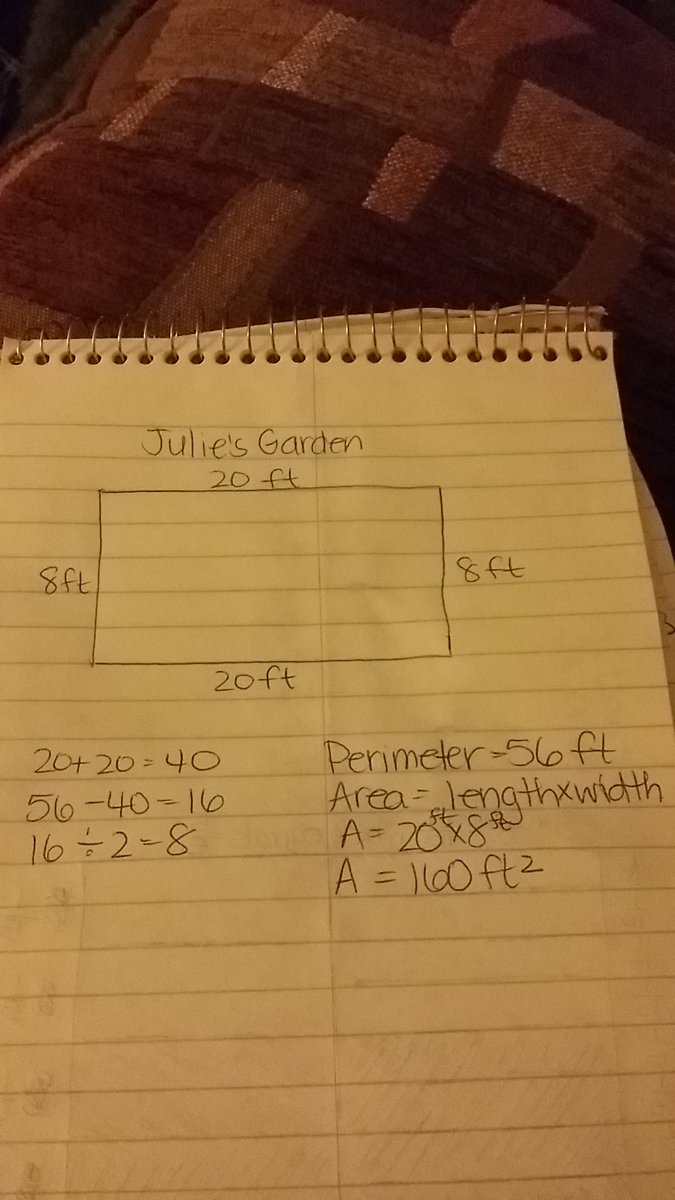 Julie's Garden
20 ft
8ft
8 ft
20ft
20+20=40
56-40=16
16÷2=8
Perimeter=56 ft
Area= lengthxwidth
A= 20ft x 8ft
A = 160 ft2